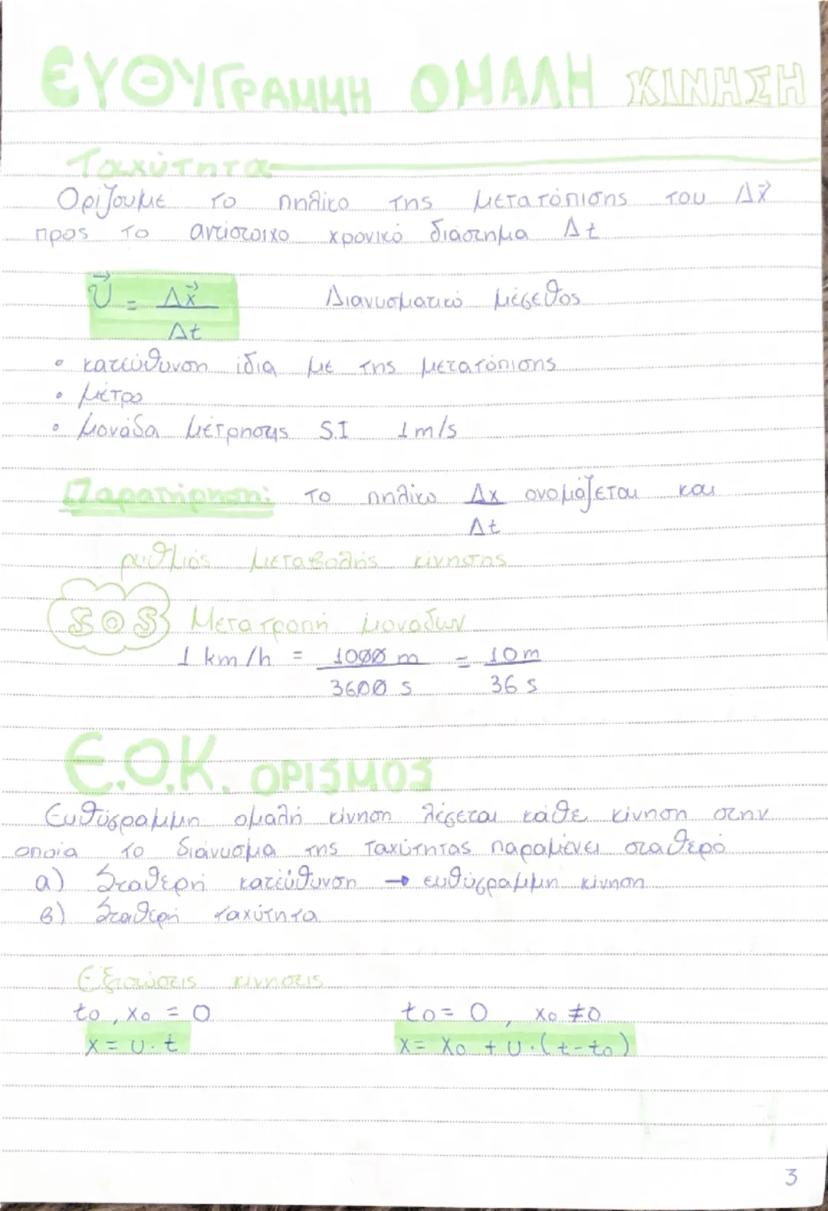 ΕΥΘΥΓΡΑΜΜΗ ΟΜΑΛΗ ΚΙΝΗΣΗ
Ταχύτητα
Ορίζουμε το πηλίκο της μετατόπισης του Δx⃗
προς το αντίστοιχο χρονικό διάστημα Δt
υ⃗ = Δx⃗ / Δt Διανυσματικό μέγεθος
• κατεύθυνση ίδια με της μετατόπισης
• μέτρο
• μονάδα μέτρησης S.I 1m/s
Παρατήρηση: το πηλίκο Δx / Δt ονομάζεται και
ρυθμός μεταβολής κίνησης
SOS Μετατροπή μονάδων
1 km/h = 1000 m / 3600 s = 10m / 36 s
Ε.Ο.Κ. ΟΡΙΣΜΟΣ
Ευθύγραμμη ομαλή κίνηση λέγεται κάθε κίνηση στην
οποία το διάνυσμα της ταχύτητας παραμένει σταθερό
α) Σταθερή κατεύθυνση → ευθύγραμμη κίνηση
β) Σταθερή ταχύτητα
Εξισώσεις κίνησεις
t₀, x₀ = 0 t₀ = 0, x₀ ≠ 0
x = υ · t x = x₀ + υ · (t - t₀)
3